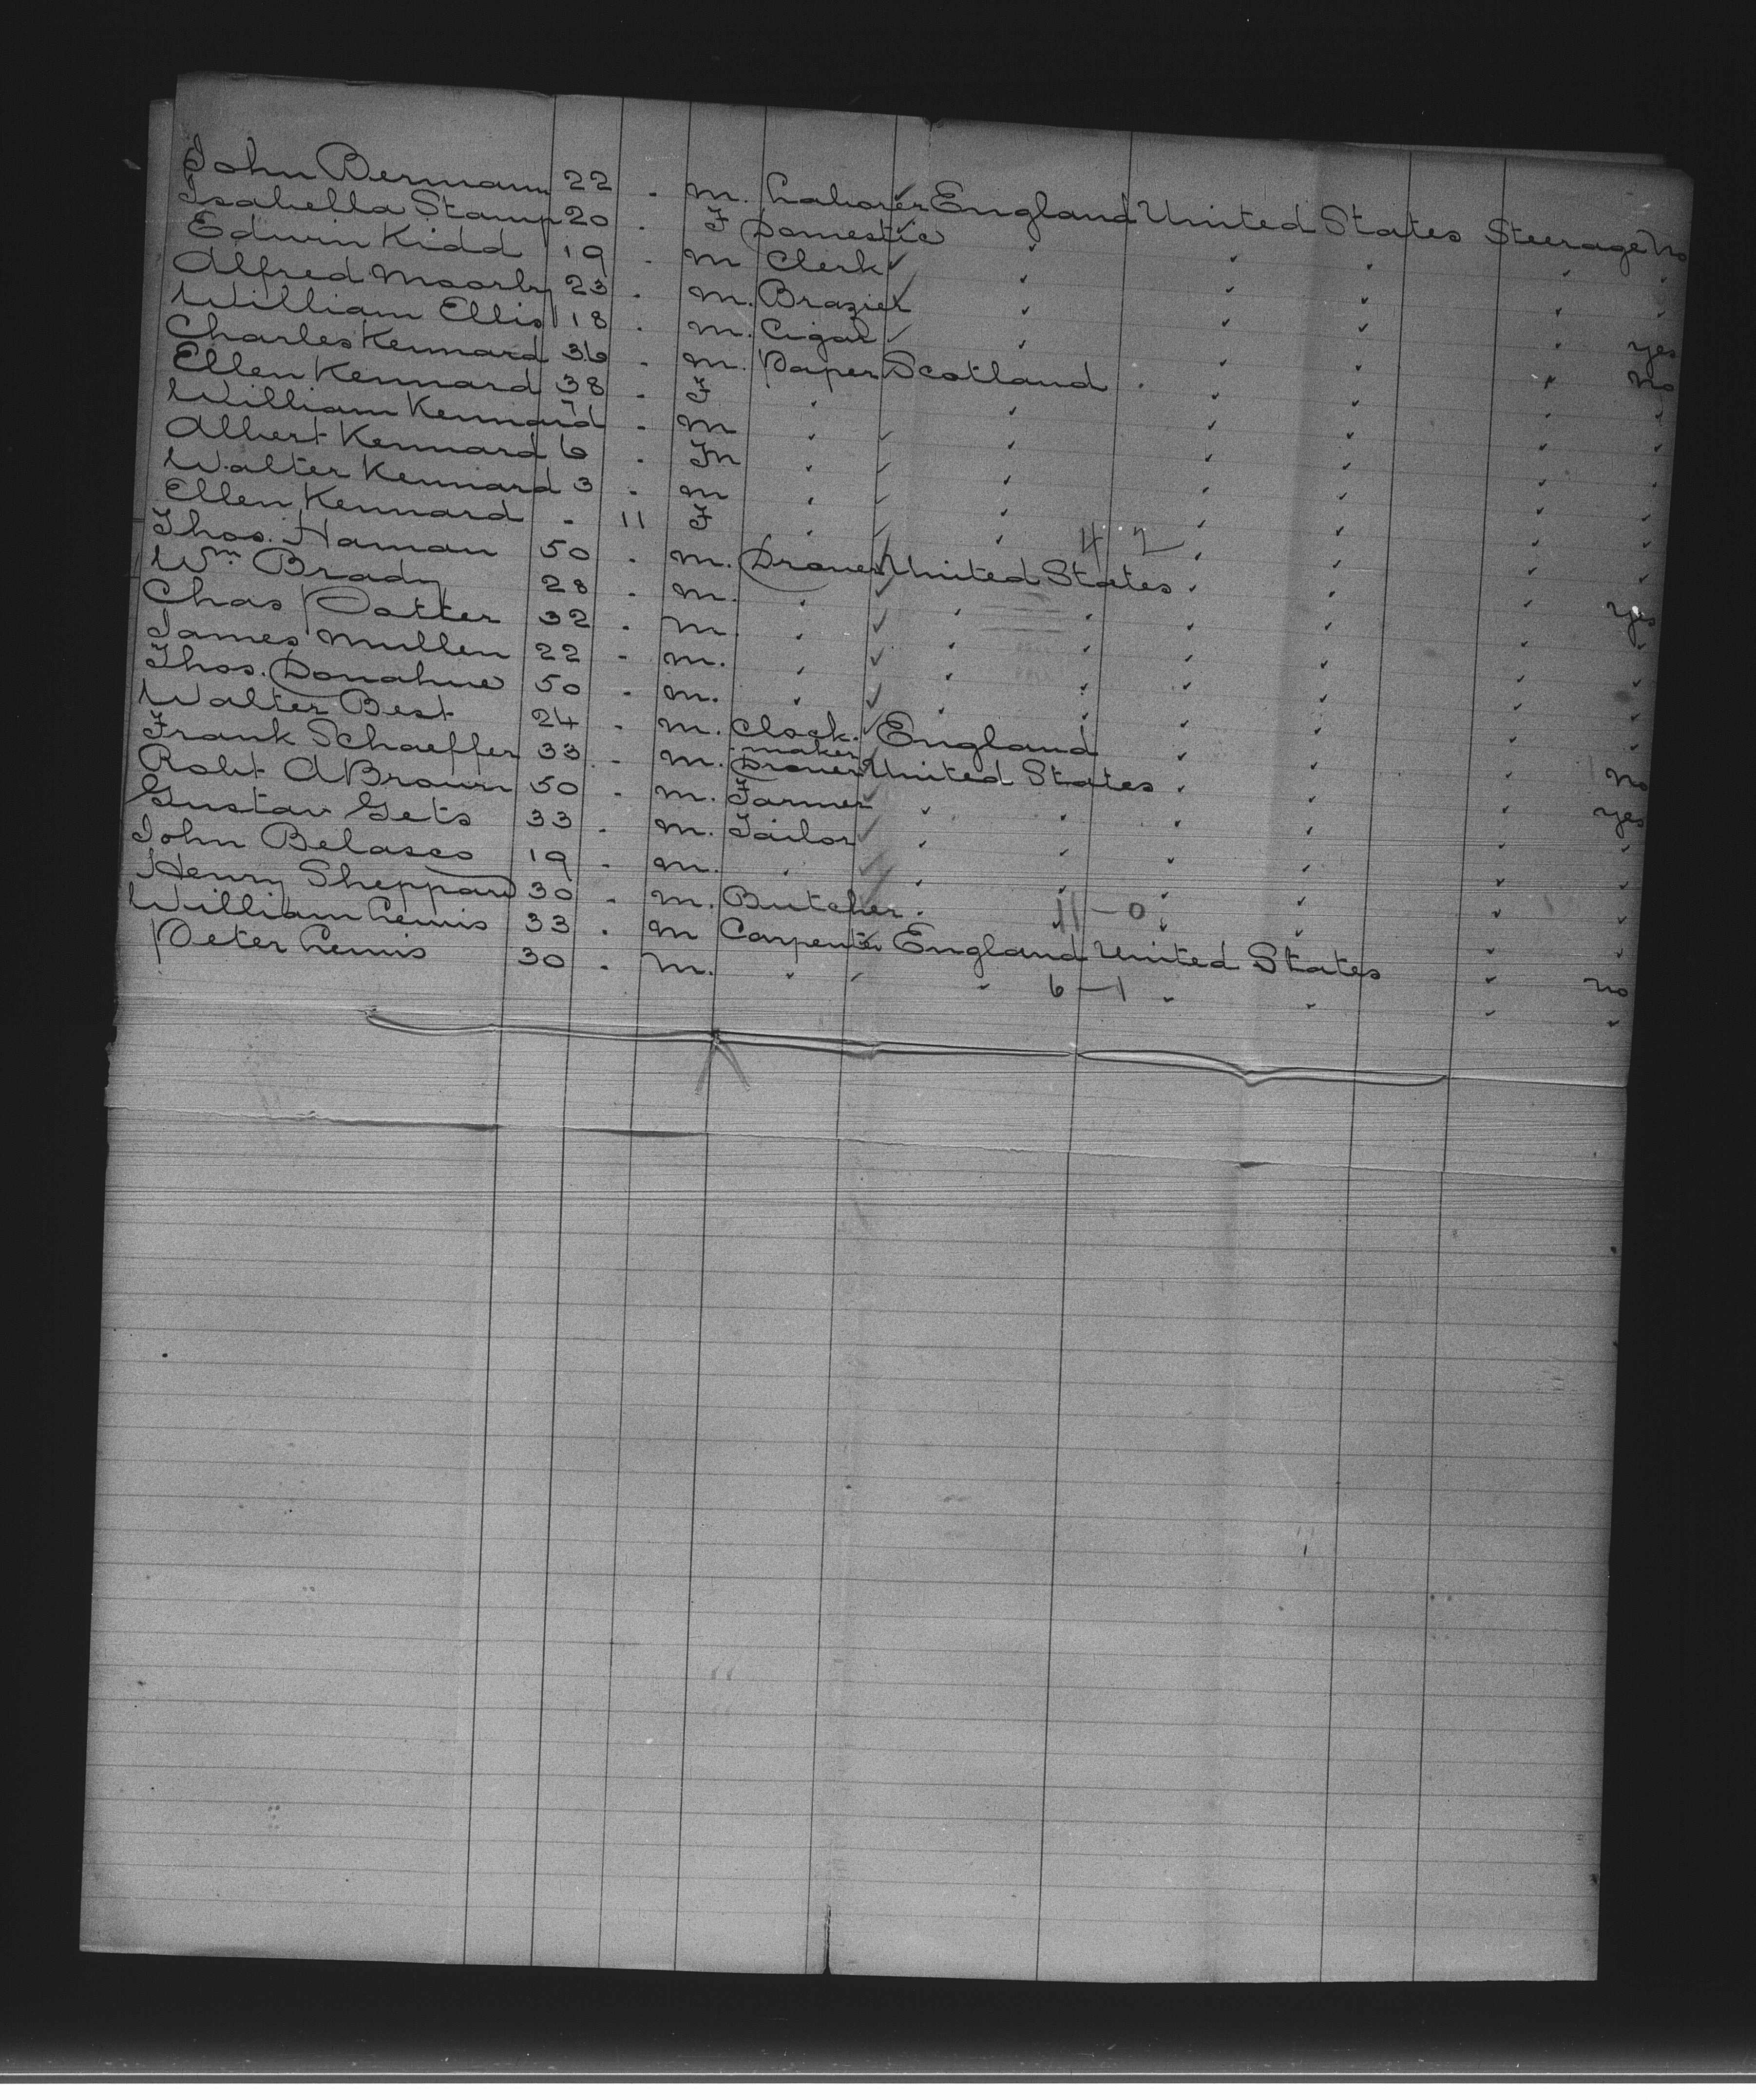 John Bermann 22 . m. Laborer ✓ England United States Steerage No
Isabella Stamp 20 . F Domestic ✓ " " " " "
Edwin Kidd 19 . m Clerk ✓ " " " " "
Alfred Moorby 23 . m. Brazier ✓ " " " " yes
William Ellis 18 . m. Cigar ✓ " " " " No
Charles Kennard 36 . m. Paper Scotland . " " " "
Ellen Kennard 38 . F " " " " " "
William Kennard 7 . m " ✓ " " " " "
Albert Kennard 6 . m " ✓ " " " " "
Walter Kennard 3 . m " ✓ " " " " "
Ellen Kennard - 11 F " ✓ " 4 2 " " " "
Thos. Haman 50 . m. Drover ✓ United States " " " yes
Wm Brady 28 . m. " ✓ " " " " " "
Chas Potter 32 . m. " ✓ " " " " " "
James Mullen 22 - m. " ✓ " " " " " "
Thos. Donahue 50 - m. " ✓ " " " " " "
Walter Best 24 - m. Clock- ✓ England " " " No
maker
Frank Schaeffer 33 - m. Drover ✓ United States " " " yes
Robt A Brown 50 - m. Farmer ✓ " " " " " "
Gustav Gets 33 . m. Tailor ✓ " " " " " "
John Belasco 19 - m. " ✓ " " " " " "
Henry Sheppard 30 - m. Butcher ✓ " 11-0 " " " "
William Lewis 33 . m Carpenter ✓ England United States " No
Peter Lewis 30 . m. " ✓ " 6-1 " " " "